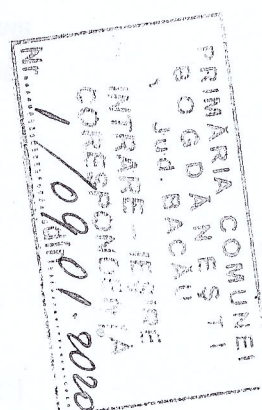 PRIMĂRIA COMUNEI
BOGDĂNEȘTI
Jud. BACĂU
INTRARE - IEȘIRE
CORESPONDENȚA
Nr. 1/09.01.2020